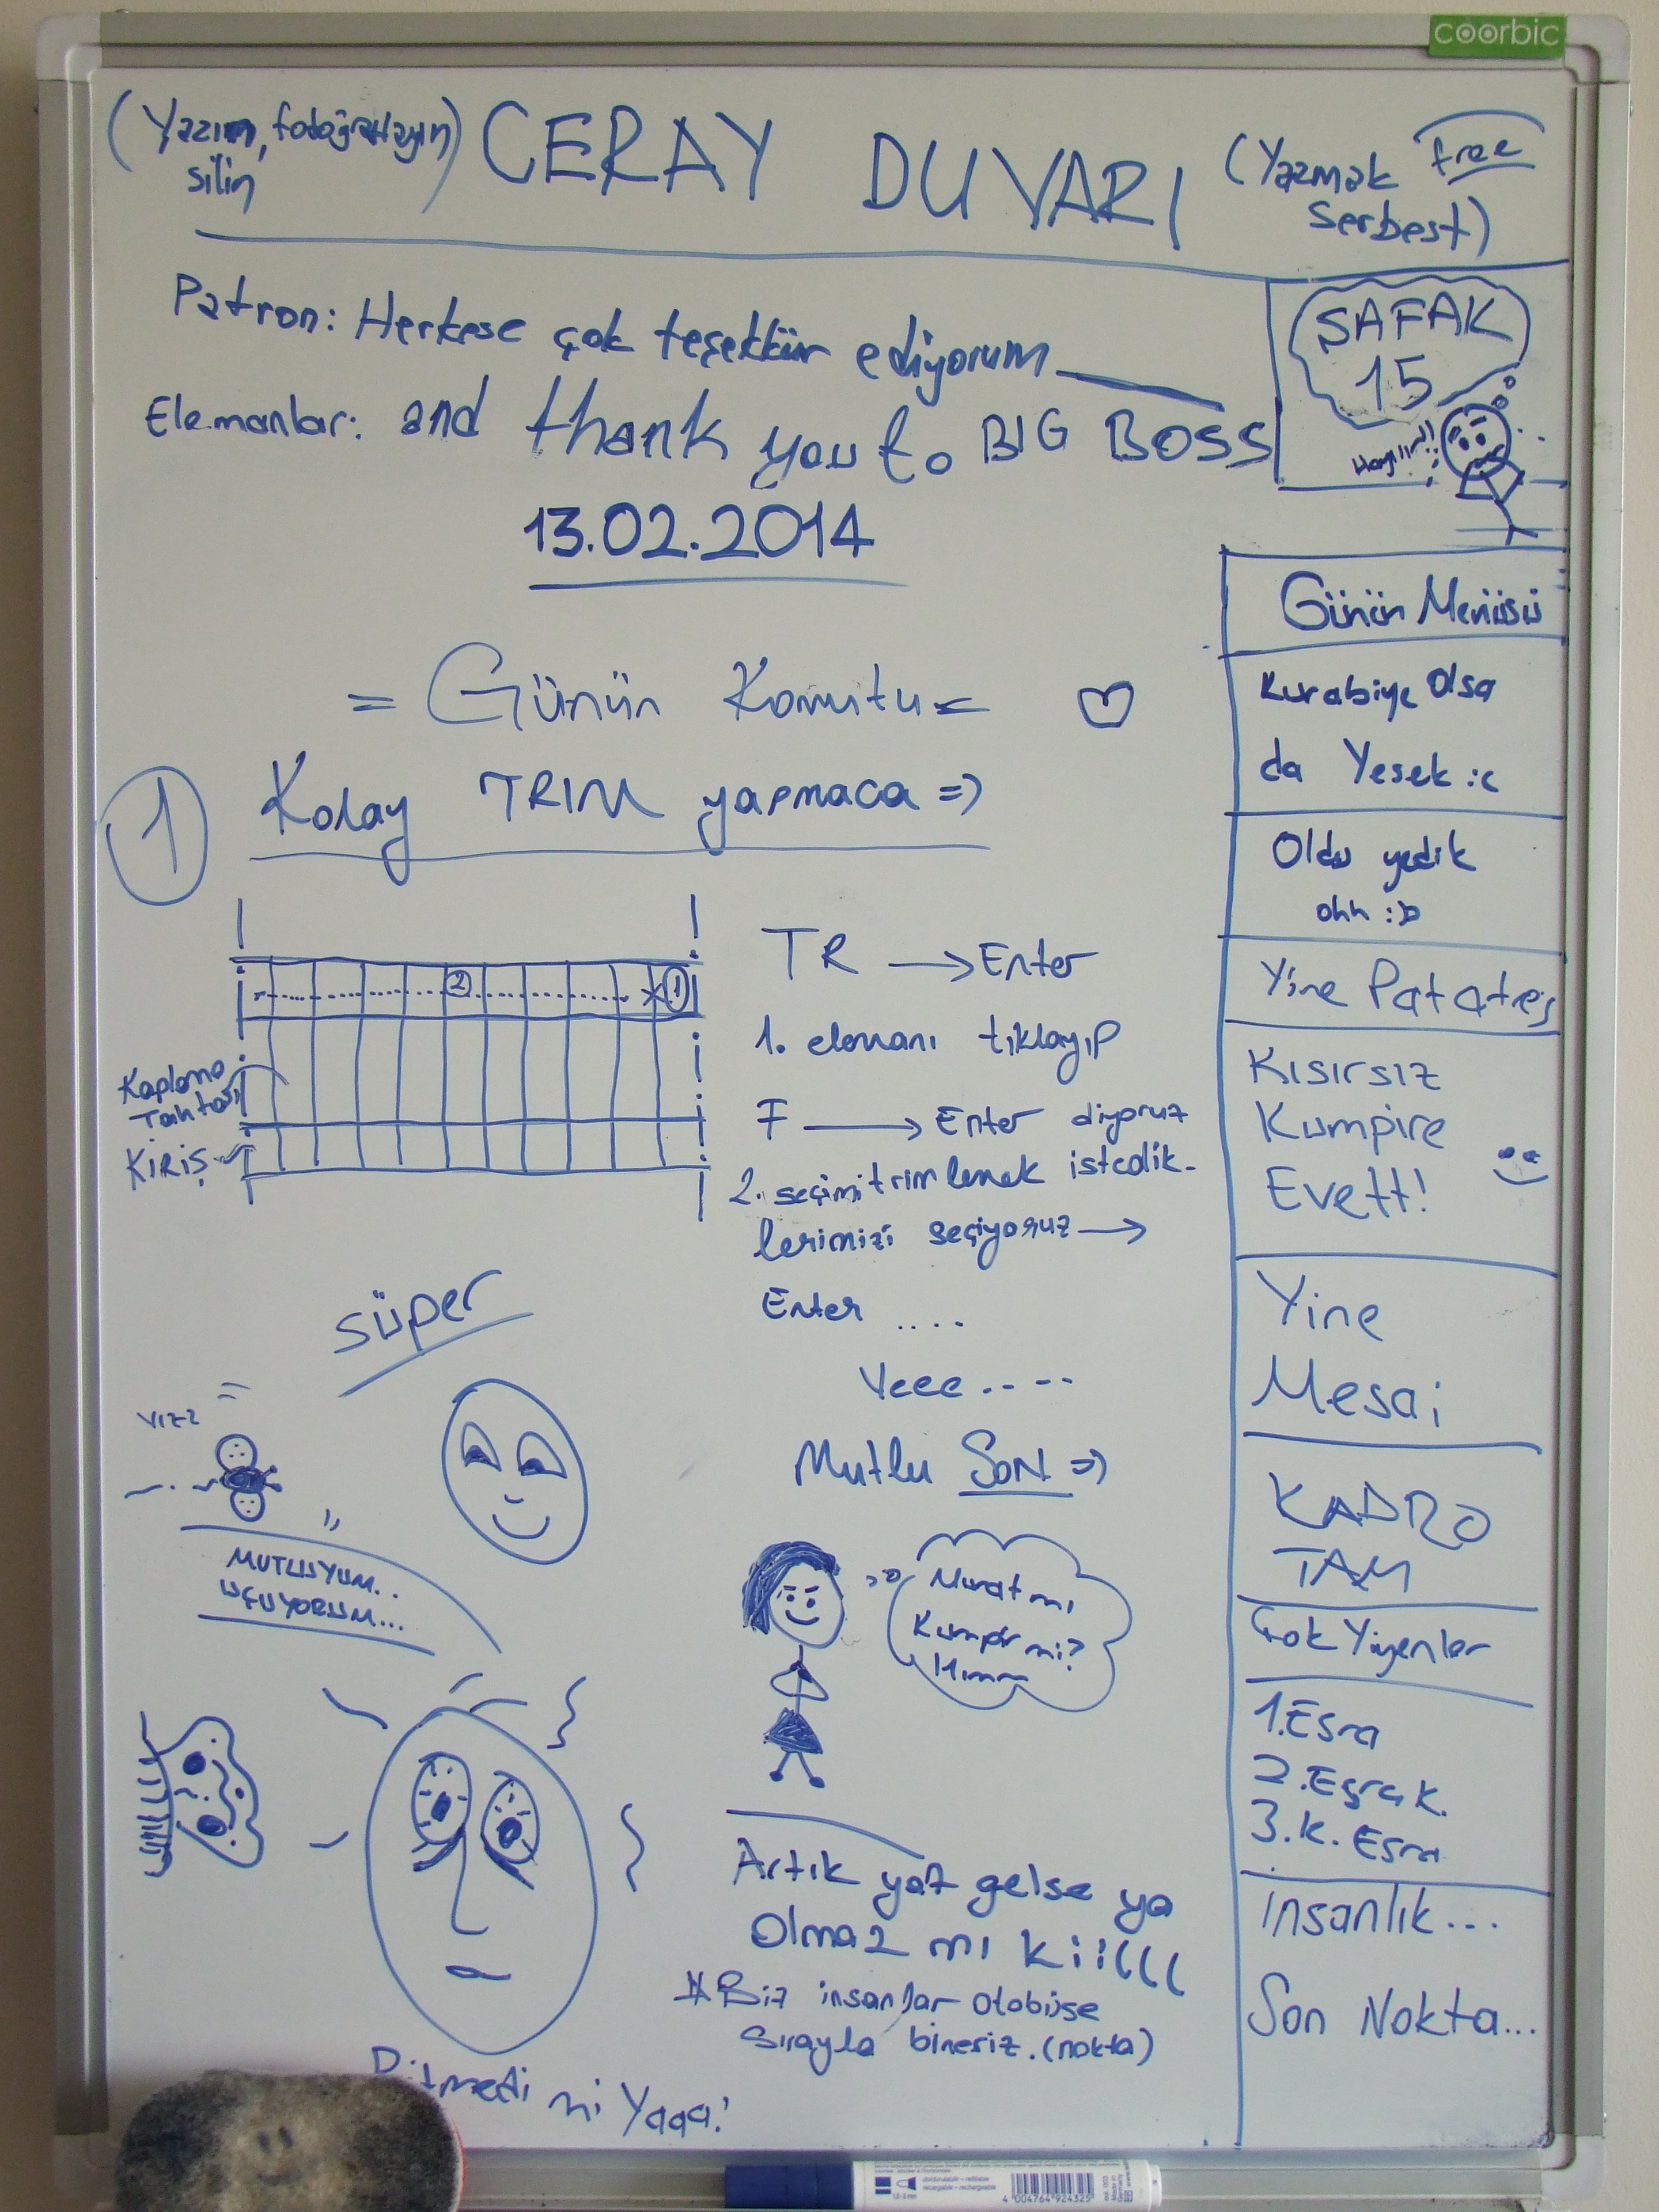 coorbic
(Yazın, fotoğraflayın)
silin
CERAY DUVARI
(Yazmak Free
Serbest)
Patron: Herkese çok teşekkür ediyorum
Elemanlar: and thank you to BIG BOSS
13.02.2014
ŞAFAK
15
= Günün Komutu =
1 Kolay TRIM yapmaca =>
2
1
Kaplama
Tahtası
KİRİŞ
TR → Enter
1. elemanı tıklayıp
F → Enter diyoruz
2. seçimi trimlemek istedik-
lerimizi seçiyoruz →
Enter ....
Yeee.....
Mutlu SON =>
süper
VIZZ
MUTLUYUM..
UÇUYORUM...
Murat mı
Kumpir mi?
Hımm
Artık yaz gelse ya
Olmaz mı kii((((
* Biz insanlar otobüse
sırayla bineriz. (nokta)
Bitmedi mi Yaaa!
Günün Menüsü
Kurabiye Olsa
da Yesek :c
Oldu yedik
ohh :D
Yine Patates
Kısırsız
Kumpire
Evett!
Yine
Mesai
KADRO
TAM
Çok Yiyenler
1. Esra
2. Esra K.
3. K. Esra
insanlık...
Son Nokta...
4 004764 924325